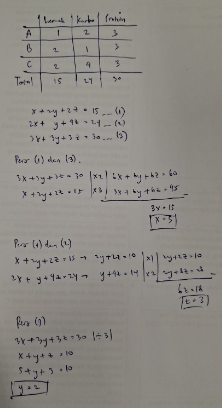 Lemak | Karbo | Protein
A | 1 | 2 | 3
B | 2 | 1 | 3
C | 2 | 4 | 3
Total | 15 | 24 | 30
x + 2y + 2z = 15 ... (1)
2x + y + 4z = 24 ... (2)
3x + 3y + 3z = 30 ... (3)
Pers (1) dan (3).
3x + 3y + 3z = 30 | x2 | 6x + 6y + 6z = 60
x + 2y + 2z = 15 | x3 | 3x + 6y + 6z = 45
3x = 15
x = 5
Pers (1) dan (2)
x + 2y + 2z = 15 → 2y + 2z = 10 | x1 | 2y + 2z = 10
2x + y + 4z = 24 → y + 4z = 14 | x2 | 2y + 8z = 28
6z = 18
z = 3
Pers (3)
3x + 3y + 3z = 30 (÷3)
x + y + z = 10
5 + y + 3 = 10
y = 2